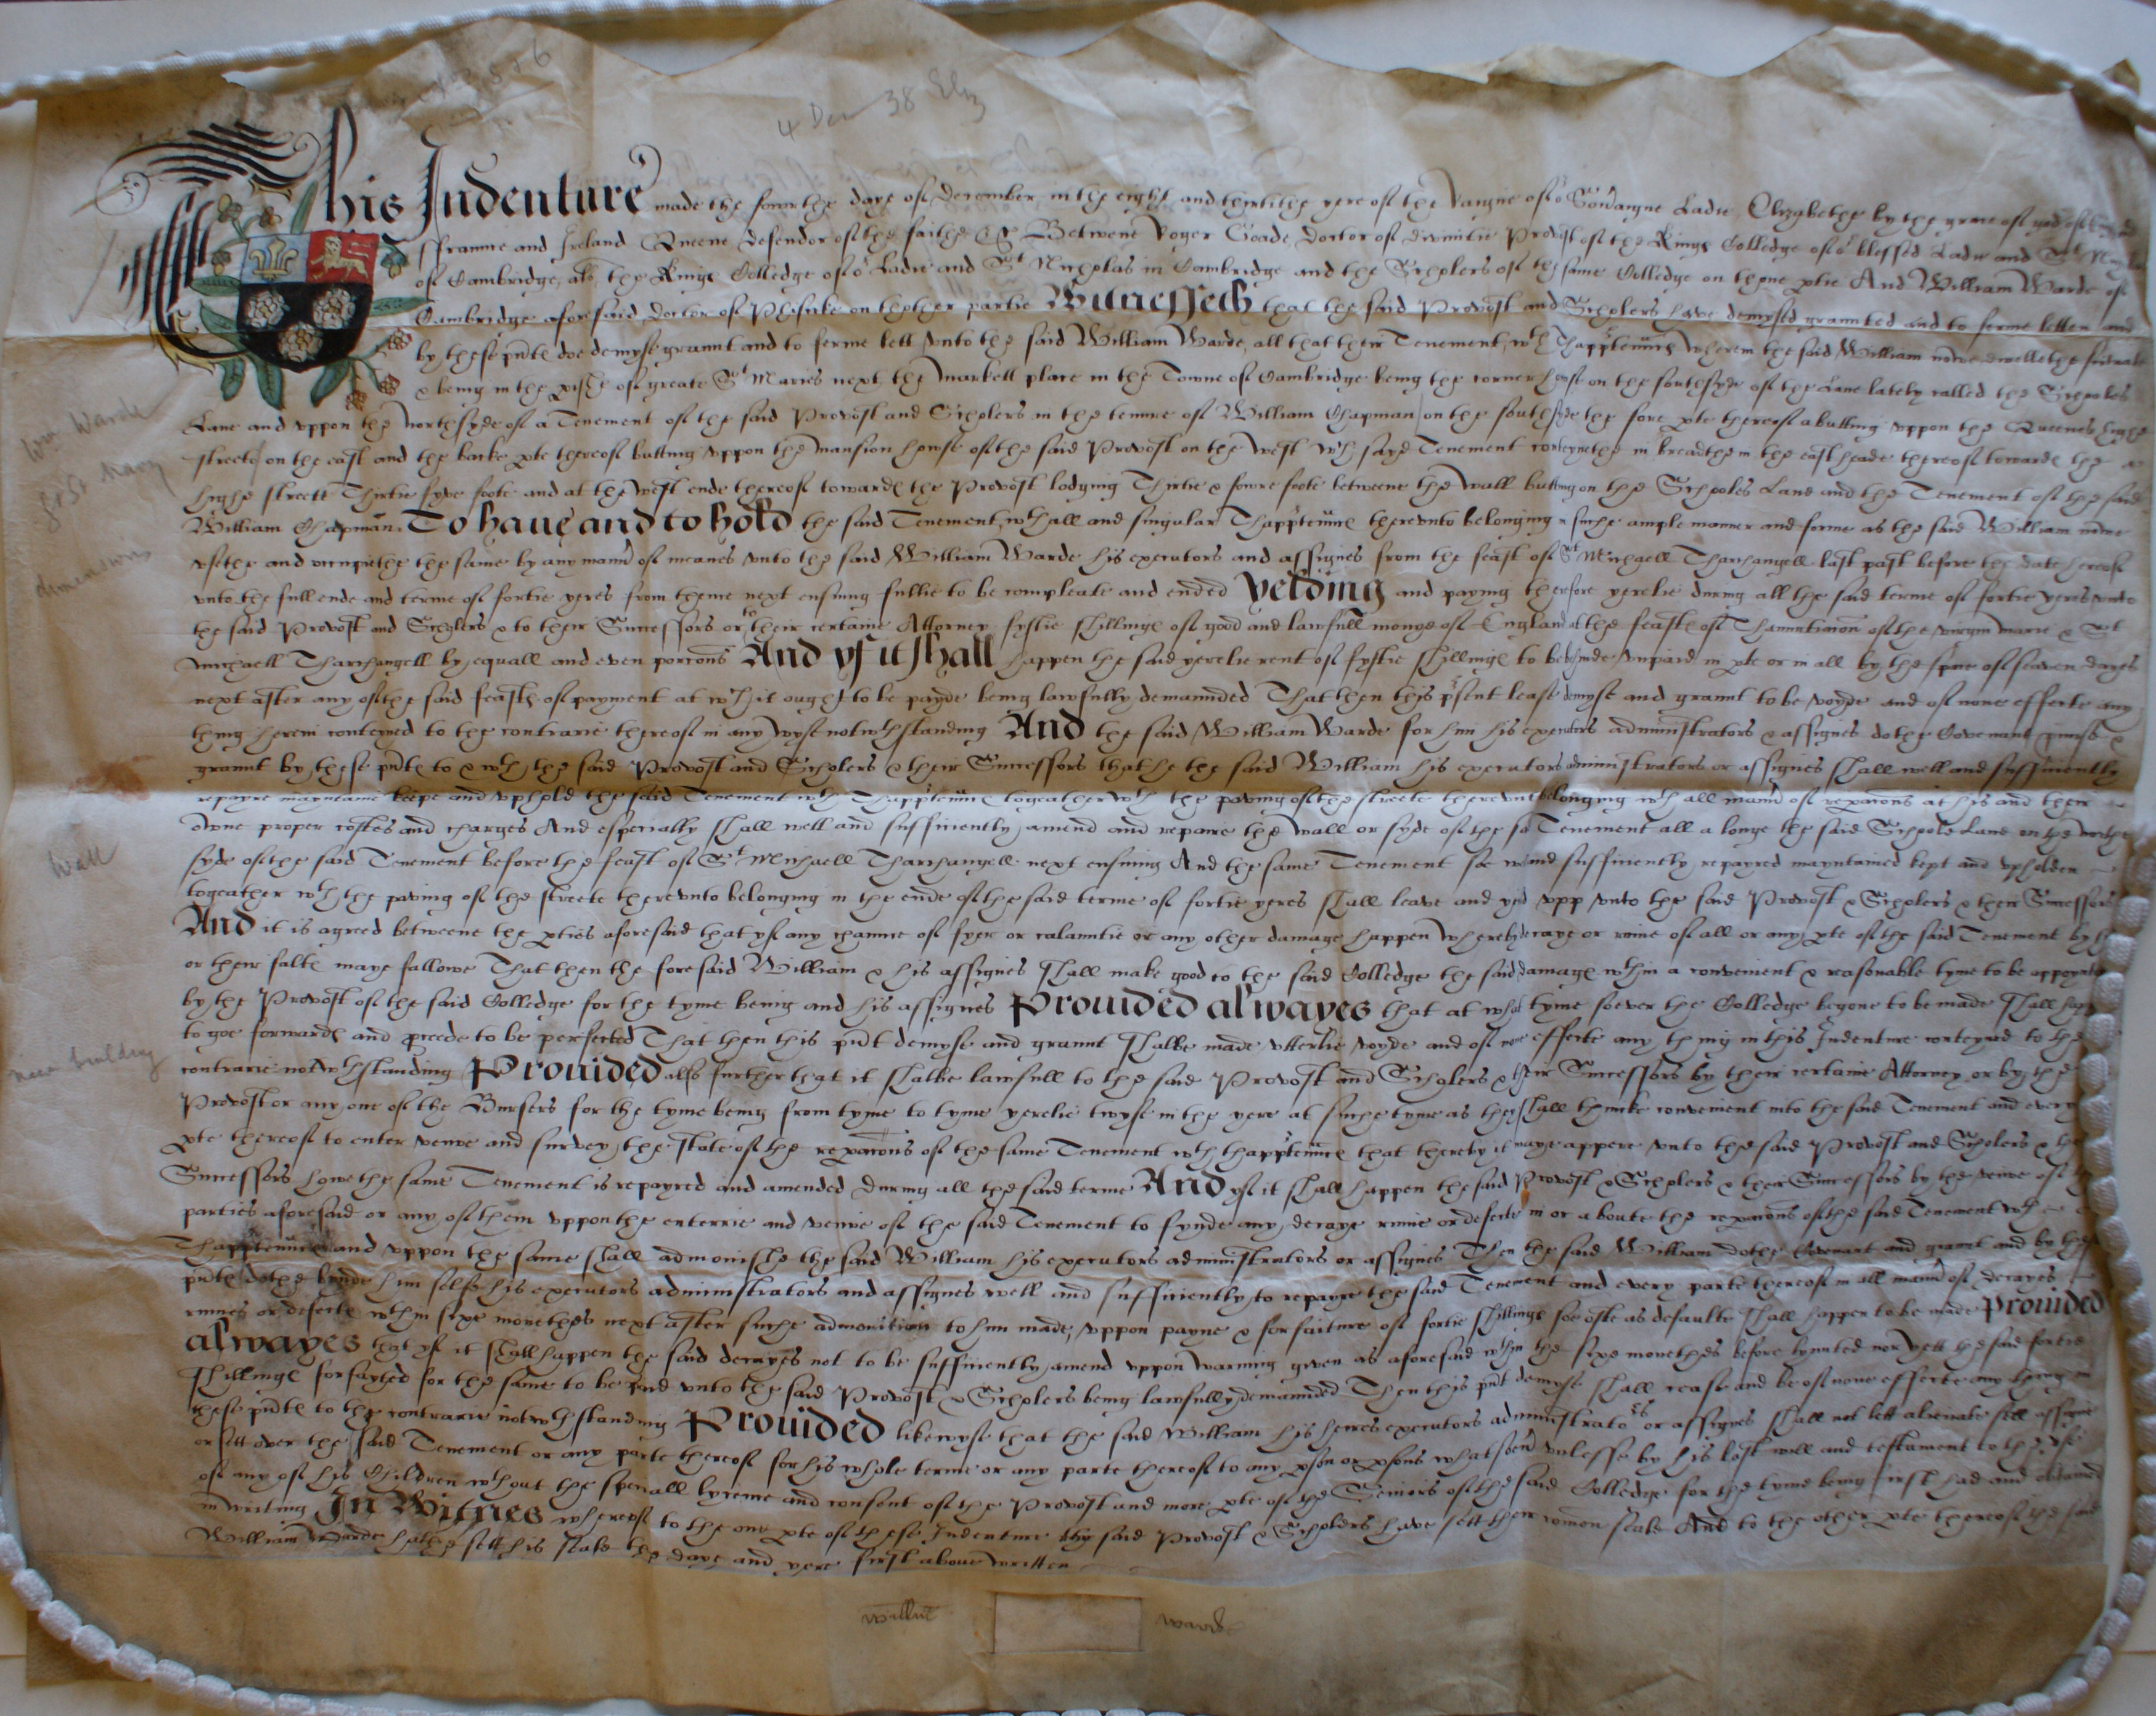 4 Dec 38 Eliz
This Indenture made the fowrthe daye of December in the eight and thirtithe yere of the Raigne of oʳ Soũaigne Ladie Elizabethe by the grace of god of
ffraunce and Ireland Queene defendor of the faithe &c Betwene Roger Goade Doctor of divinitie Provost of the Kings Colledge of oʳ blessed Ladie and Sᵗ
of Cambridge, als the Kings Colledge of oʳ Ladie and Sᵗ Nicholas in Cambridge and the Scholers of the same Colledge on thone ptie And William Warde of
Cambridge aforesaid Doctor of Phisicke on thother partie Witnesseth that the said Provost and Scholers have demysed graunted and to ferme letten and
by these pñts doe demyse graunt and to ferme lett vnto the said William Warde, all that their Tenement wᵗʰ Thapptenñcs wherein the said William nowe dwellethe scituate
& being in the pishe of greate Sᵗ Maries next the Markett place in the Towne of Cambridge being the corner howse on the southsyde of the Lane lately called the Scholes
Lane and vppon the northsyde of a Tenement of the said Provost and Scholers in the tenure of William Chapman on the southsyde the fore pte thereof abutting vppon the Queenes highe
streete on the east and the backe pte thereof butting vppon the mansion howse of the said Provost on the west wᶜʰ sayd Tenement conteynethe in breadthe in the east heade thereof towards the
highe streett Thirtie fyve foote and at the west ende thereof towards the Provost lodging Thirtie & fowre foote betweene the wall butting on the Scholes Lane and the Tenement of the said
William Chapman. To haue and to hold the said Tenement wᵗʰ all and singular Thapptenñcs therevnto belonging in suche ample manner and forme as the said William nowe
vsethe and occupiethe the same by any mannʳ of meanes vnto the said William Warde his executors and assignes from the feast of Sᵗ Michaell Tharchangell last past before the date hereof
vnto the full ende and terme of fortie yeres from thence next ensuing fullie to be compleate and ended Yelding and paying therfore yerelie during all the said terme of fortie yeres vnto
the said Provost and Scholers & to their Successors or to their certaine Attorney fyftie shillings of good and lawfull money of England at the feasts of Thannuntiacion of the virgin Marie & Sᵗ
Michaell Tharchangell by equall and even porcons And yf it shall happen the said yerelie rent of fyftie shillings to be behinde vnpaid in pte or in all by the space of seaven dayes
next after any of the said feasts of payment at wᶜʰ it ought to be payde being lawfully demaunded That then this psent lease demyse and graunt to be voyde and of none effecte any
thing herein conteyned to the contrarie thereof in any wyse notwᵗʰstanding And the said William Warde for him his executors administrators & assignes dothe Covenant &
graunt by these pñts to & wᵗʰ the said Provost and Scholers & their Successors that he the said William his executors administrators or assignes shall well and sufficiently
repayre mayntaine keepe and vphold the said Tenement wᵗʰ Thapptenñcs togeather wᵗʰ the paving of the streete therevnto belonging wᵗʰ all mannʳ of repacons at his and their
owne proper costes and charges And especially shall well and sufficiently amend and repaire the wall or syde of the sᵈ Tenement all a longe the said Schole Lane on the northe
syde of the said Tenement before the feast of Sᵗ Michaell Tharchangell next ensuing And the same Tenement soe well and sufficiently repayred mayntained kept and vpholden
togeather wᵗʰ the paving of the streete therevnto belonging in the ende of the said terme of fortie yeres shall leave and yeld vpp vnto the said Provost & Scholers & their Successors
And it is agreed betweene the pties aforesaid that yf any chaunce of fyer or calamitie or any other damage happen whereby decaye or ruine of all or any pte of the said Tenement by
or their falte maye fallowe That then the foresaid William & his assignes shall make good to the said Colledge the said damage wᵗʰin a convenient & reasonable tyme to be appoynted
by the Provost of the said Colledge for the tyme being and his assignes Prouided alwayes that at what tyme soever the Colledge begone to be made shall happ
to goe forwards and pceede to be perfected That then this pñt demyse and graunt shalbe made vtterlie voyde and of none effecte any thing in this Indenture conteyned to the
contrarie notwᵗʰstanding Prouided also further that it shalbe lawfull to the said Provost and Scholers & their Successors by their certaine Attorney or by the
Provost or any one of the Bursers for the tyme being from tyme to tyme yerelie twyse in the yere at suche tyme as they shall thincke convenient into the said Tenement and every
pte thereof to enter veiwe and survey the state of the repacons of the same Tenement wᵗʰ thapptenñcs that thereby it maye appere vnto the said Provost and Scholers & the
Successors howe the same Tenement is repayred and amended during all the said terme And yf it shall happen the said Provost & Scholers & their Successors by the veiwe of
parties aforesaid or any of them vppon the enterrie and veiwe of the said Tenement to fynde any decaye ruine or defecte in or aboute the repacons of the said Tenement wᵗʰ
Thapptenñcs and vppon the same shall admonishe the said William his executors administrators or assignes Then the said William dothe Covenant and graunt and by these
pñts dothe bynde him selfe his executors administrators and assignes well and sufficiently to repayre the said Tenement and every parte thereof in all mannʳ of decayes
ruines or defects wᵗʰin sixe monethes next after suche admonition to him made, vppon payne & forfaiture of fortie shillings soe ofte as defaulte shall happen to be made Prouided
alwayes that yf it shall happen the said decayes not to be sufficiently amend vppon warning given as aforesaid wᵗʰin the sixe monethes before lymited nor yett the said fortie
shillings forfayted for the same to be paid vnto the said Provost & Scholers being lawfully demaunded Then this pñt demyse shall cease and be of none effecte any thing in
these pñts to the contrarie notwᵗʰstanding Prouided likewyse that the said William his heires executors administratoʳs or assignes shall not lett alienate sell assigne
or sett over the said Tenement or any parte thereof for his whole terme or any parte thereof to any pson or psons whatsoevʳ vnlesse by his last will and testament to the vse
of any of his Children wᵗʰout the speciall lycence and consent of the Provost and more pte of the Seniors of the said Colledge for the tyme being first had and obtained
in writing In Witnes whereof to the one pte of these Indenture the said Provost & Scholers have sett their comon seale And to the other pte thereof the said
William Warde hathe sett his seale the daye and yere first above written
Wm Warde
Gt St Mary
dimensions
wall
new building
willm̃ warde